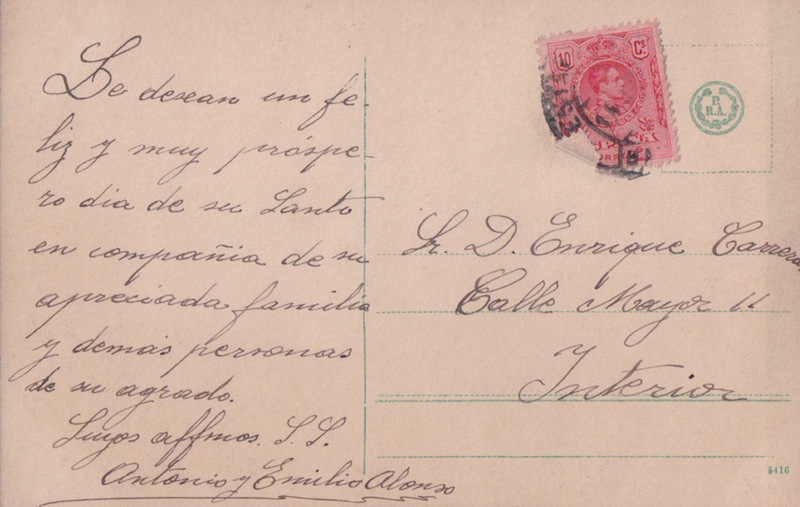 Le desean un fe-
liz y muy próspe-
ro dia de su Santo
en compañia de su
apreciada familia
y demás personas
de su agrado.
Suyos affmos. S.S.
Antonio y Emilio Alonso
10 Cs
CORREOS
P.
R.A.
Sr. D. Enrique Carrera
Calle Mayor 11
Interior
5416